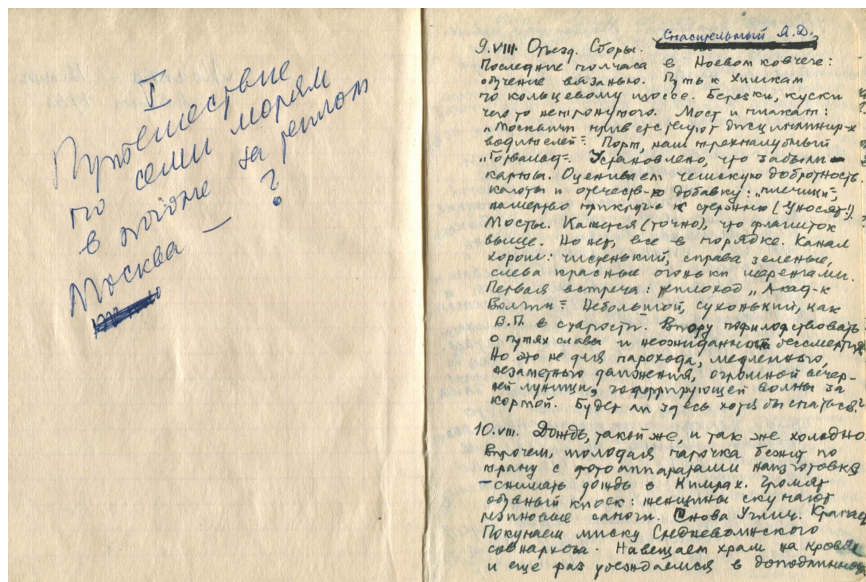 I
Путешествие
по семи морям
в погоне за теплом
Москва — ?
Спасительный А.Д.
9.VIII. Отъезд. Сборы.
Последние полчаса в Ноевом ковчеге:
обучение вязанью. Путь к Химкам
по кольцевому шоссе. Березки, куски
чего то нетронутого. Мост и плакат:
„Москвичи приветствуют дисциплинир-х
водителей“. Порт, наш трехпалубный
„Готвальд“. Установлено, что забыли
карты. Оцениваем чешскую добротность
каюты и отечеств-ю добавку: „плечищи“,
намертво прикруч-е к стержню (Уносят!).
Мосты. Кажется (точно), что флагшток
выше. Но нет, все в порядке. Канал
хорош: чистенький, справа зеленые,
слева красные огоньки шеренгами.
Первая встреча: теплоход „Акад-к
Вольгин“. Небольшой, сухонький, как
В.П. в старости. Впору пофилософствовать
о путях славы и неожиданном бессмертии
Но это не для парохода, медленного,
незаметного движения, огромной вечер-
ней лунищи, гофрирующей волны за
кормой. Будет ли здесь хотя бы спаться?
10.VIII. Дождь, такой же, и так же холодно.
Впрочем, молодая парочка бежит по
трапу с фотоаппаратами наизготовке
– снимать дождь в Кимрах. Громят
обувный киоск: женщины скупают
резиновые сапоги. Снова Углич.
Покупаем миску Средневолжского
совнархоза. Навещаем храм на крови
и еще раз убеждаемся в доподлинно